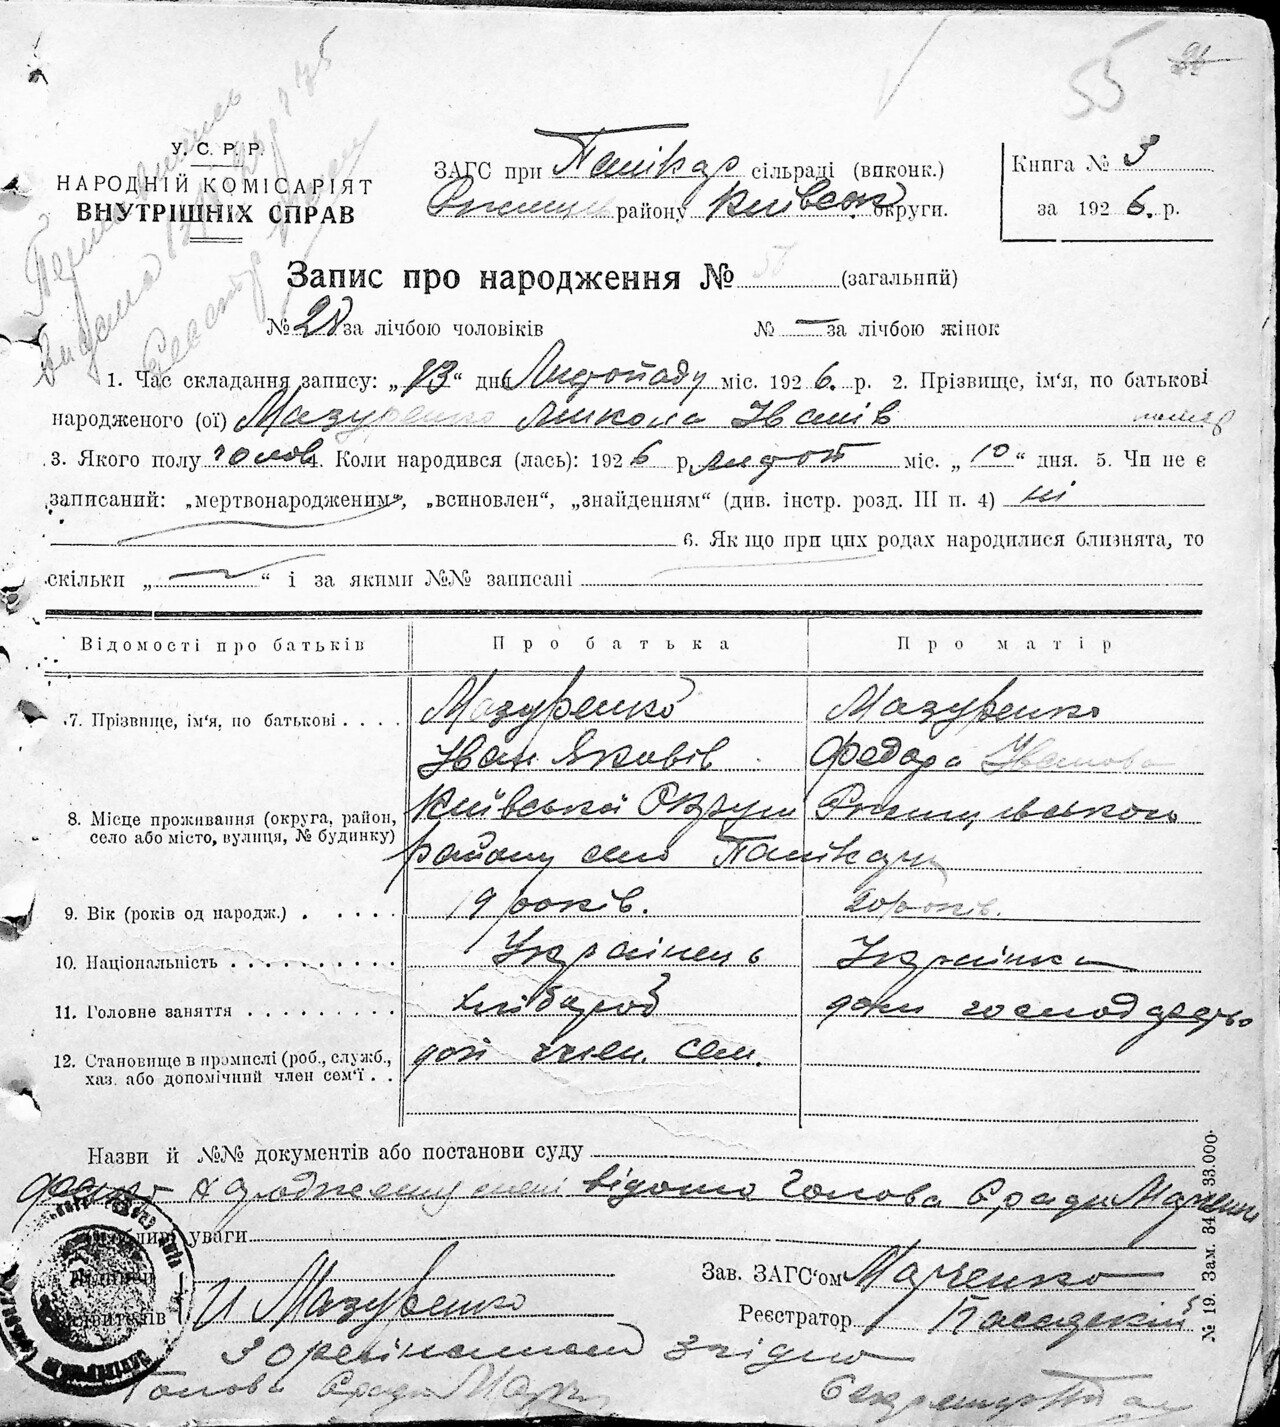 55
У. С. Р. Р.
НАРОДНІЙ КОМІСАРІЯТ
ВНУТРІШНІХ СПРАВ
ЗАГС при Панікар сільраді (виконк.)
району Київськ округи.
Книга № 3
за 1926. р.
Запис про народження № (загальний)
№ 28 за лічбою чоловіків
№ — за лічбою жінок
1. Час складання запису: „13“ дня Листопаду міс. 1926. р. 2. Прізвище, ім'я, по батькові
народженого (ої) Мазуренко Микола Іванів
3. Якого полу чолов 4. Коли народився (лась): 1926 р. Листоп міс. „10“ дня. 5. Чи не є
записаний: „мертвонародженим“, „всиновлен“, „знайденням“ (див. інстр. розд. III п. 4) ні
6. Якщо при цих родах народилися близнята, то
скільки „—“ і за якими №№ записані
Відомості про батьків Про батька Про матір
7. Прізвище, ім'я, по батькові . . . . Мазуренко Мазуренко
Іван Яковів Федора Іванова
8. Місце проживання (округа, район, Київської Округи
село або місто, вулиця, № будинку) району село Панікарч
9. Вік (років од народж.) . . . . . 19 років. 20 років.
10. Національність . . . . . . . . . . Українець Українка
11. Головне заняття . . . . . . . . . Хлібороб дом господарство
12. Становище в промислі (роб., служб., доп член сем.
хаз. або допомічний член сем'ї . .
Назви й №№ документів або постанови суду
Факт народження мені відомо Голова Сради Марченко
Особливі уваги
Підписи
заявителів И Мазуренко
Зав. ЗАГС'ом Марченко
Реєстратор
З орегіналом згідно
Голова Сради Марч
Секретар
№ 19. Зам. 34 33.000.